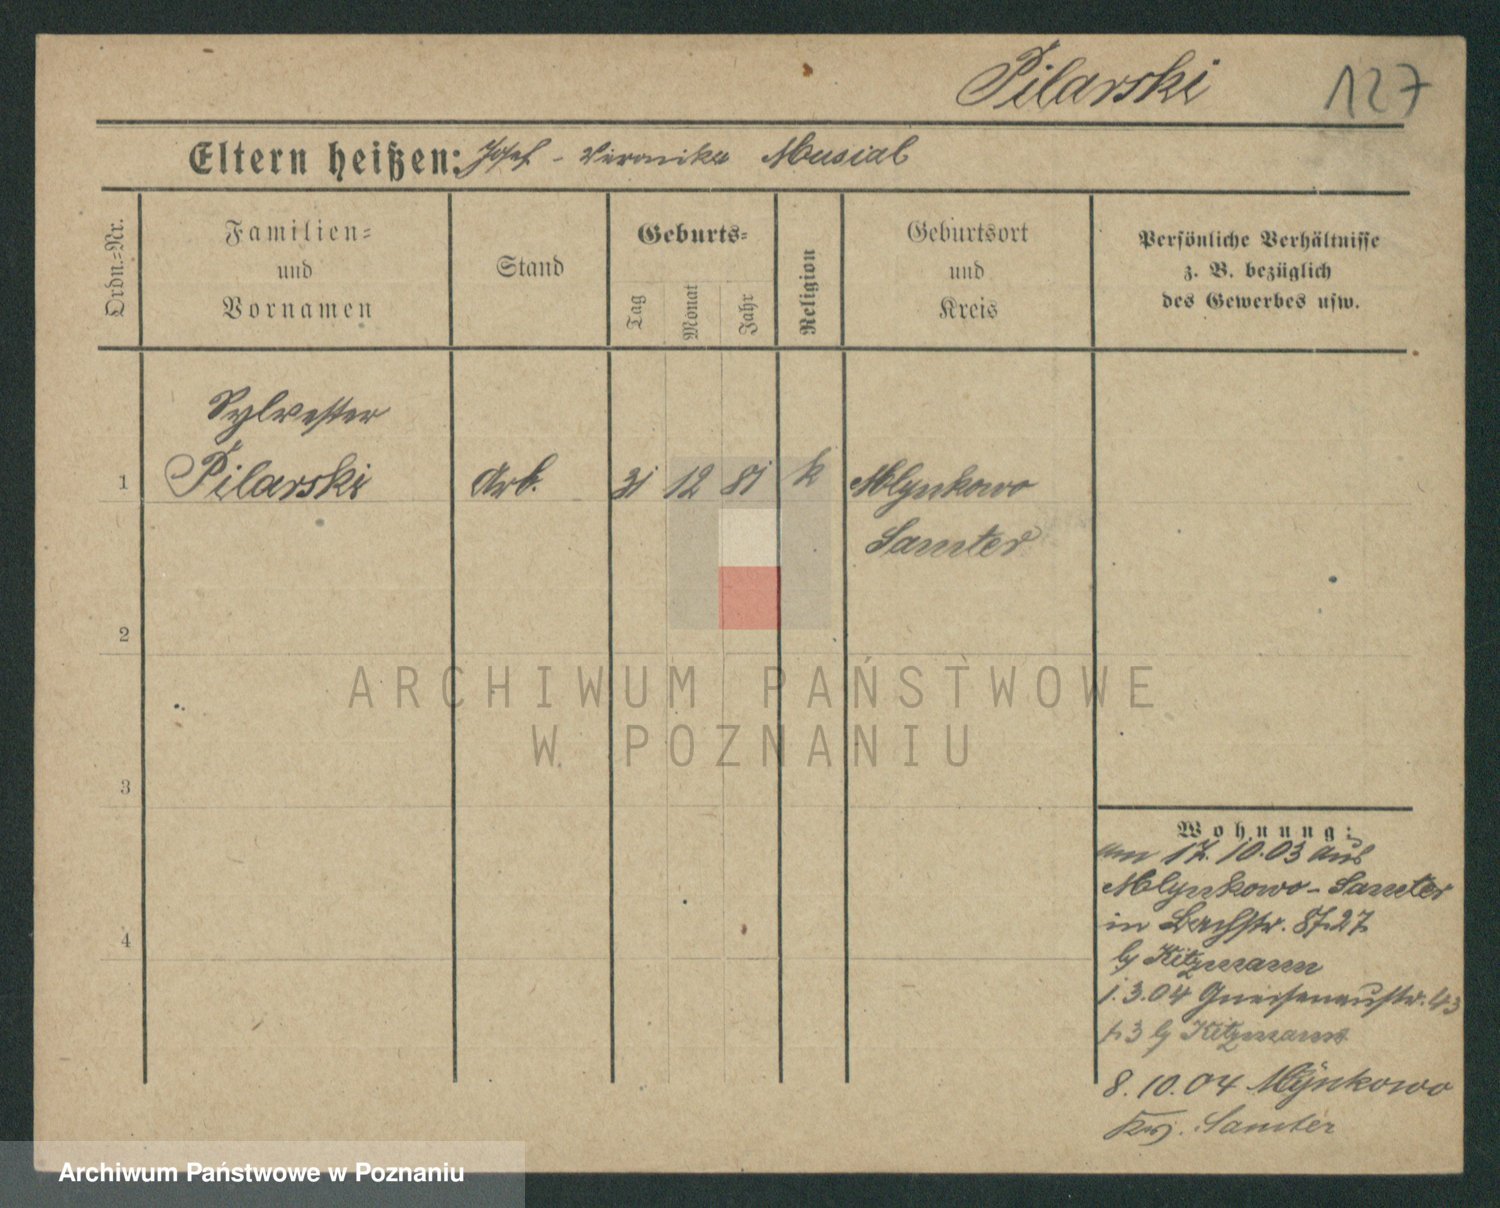 Pilarski 127
Eltern heißen: Josef - Veronika Musial
Ordn.=Nr.
Familien=
und
Vornamen
Stand
Geburts=
Tag
Monat
Jahr
Religion
Geburtsort
und
Kreis
Persönliche Verhältnisse
z. B. bezüglich
des Gewerbes usw.
Sylvester
1 Pilarski Arb. 31 12 81 k Mlynkowo
Samter
2
3
4
Wohnung:
am 17. 10. 03 aus
Mlynkowo - Samter
in Bachstr.
b/ Kitzmann
1. 3. 04 Gneisenaustr. 43
b/ Kitzmann
8. 10. 04 Mlynkowo
Samter
ARCHIWUM PAŃSTWOWE
W POZNANIU
Archiwum Państwowe w Poznaniu